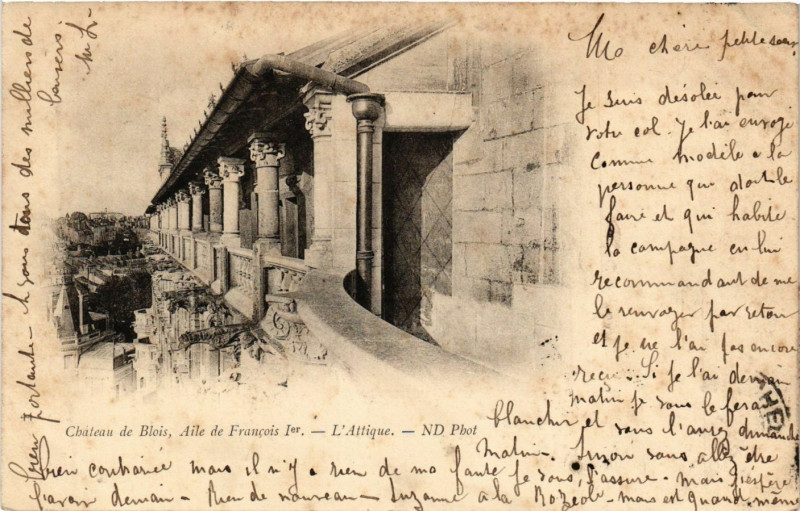 Ma chère petite sœur,
Je suis désolée pour
votre col. Je l'ai envoyé
comme modèle à la
personne qui doit le
faire et qui habite
la campagne en lui
recommandant de me
le renvoyer par retour
et je ne l'ai pas encore
reçu. Si je l'ai demain
matin je vous le ferai
blanchir et vous l'aurez dimanche
matin. Suzon vous allez être
bien contrariée mais il n'y a rien de ma faute je vous l'assure. Mais j'espère
l'avoir demain. Rien de nouveau. Suzanne à la mais est quand même
bien portante. Je vous des milliers de
baisers
Château de Blois, Aile de François Ier. — L'Attique. — ND Phot
HER